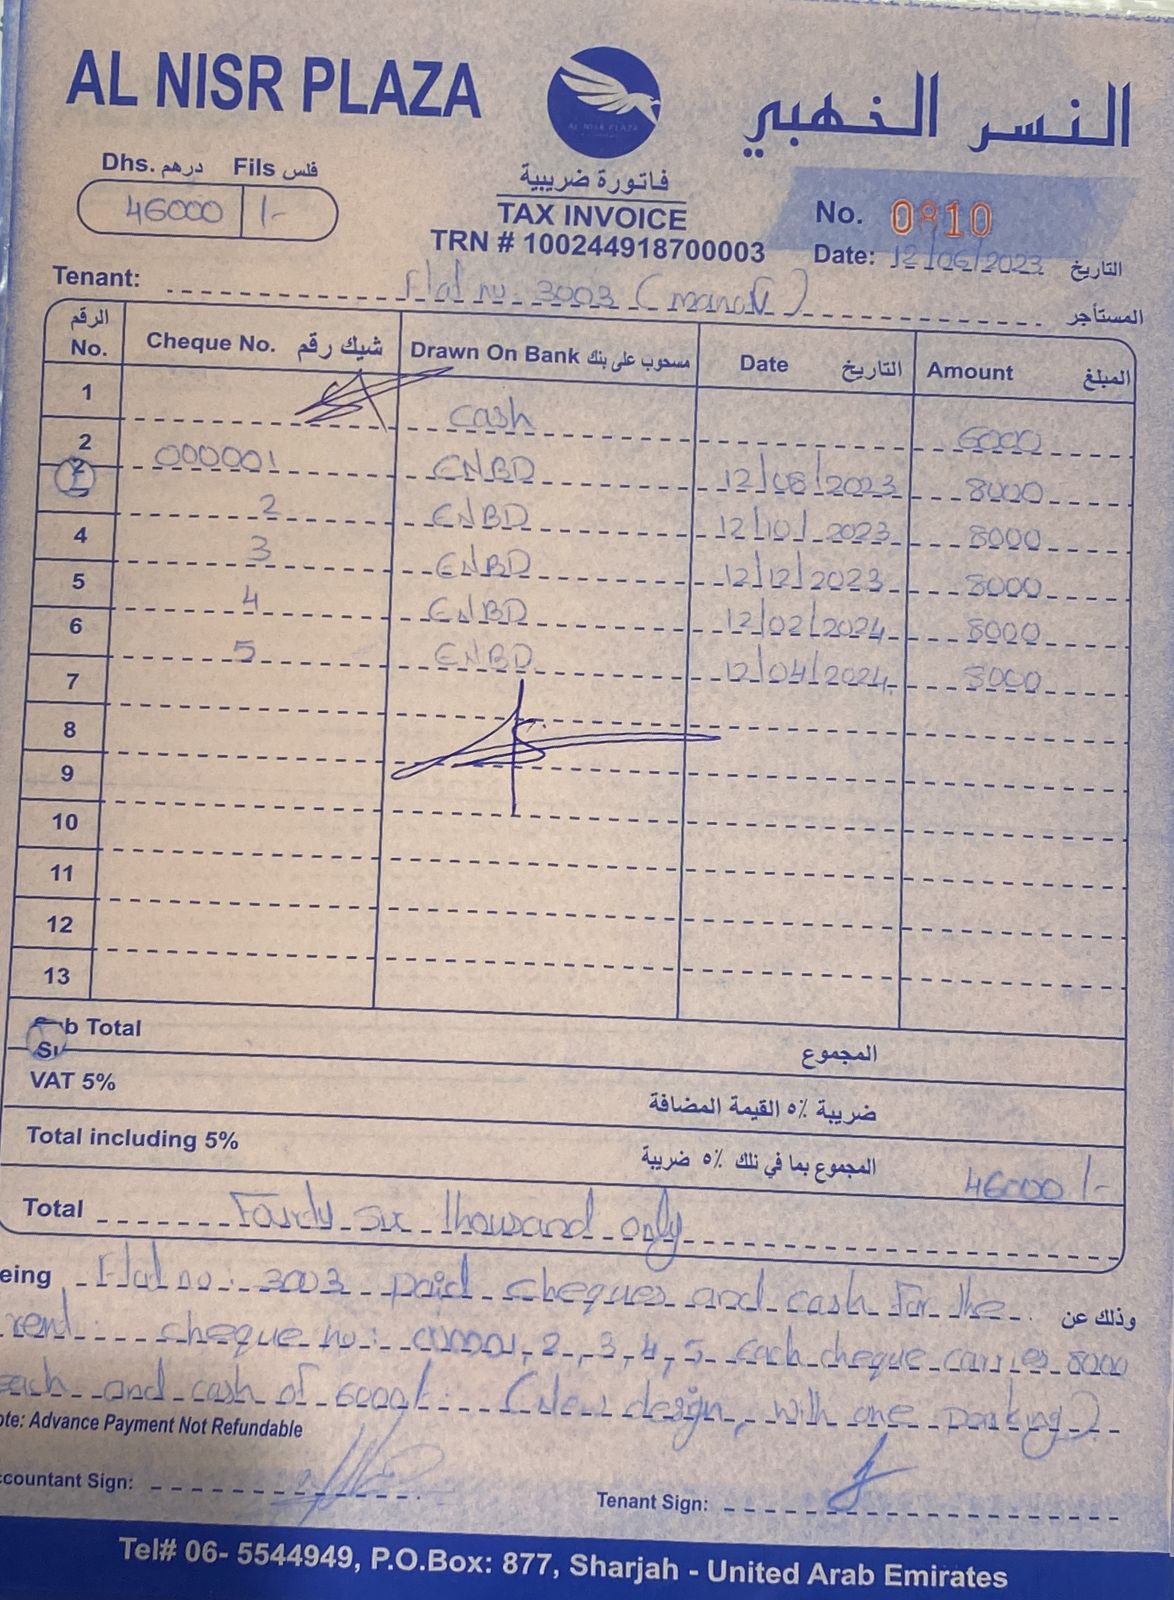 AL NISR PLAZA
AL NISR PLAZA
النسر الخهبي
Dhs. درهم Fils فلس
46000 /-
فاتورة ضريبية
TAX INVOICE
TRN # 100244918700003
No. 0810
Date: 12/06/2023 التاريخ
Tenant: Flat no. 3003 المستأجر
الرقم No. Cheque No. شيك رقم Drawn On Bank مسحوب على بنك Date التاريخ Amount المبلغ
1 cash 6000
2 000001 ENBD 12/08/2023 8000
2 ENBD 12/10/2023 8000
4 3 ENBD 12/12/2023 8000
5 4 ENBD 12/02/2024 8000
6 5 ENBD 12/04/2024 8000
7
8
9
10
11
12
13
b Total المجموع
VAT 5% ضريبة ٥٪ القيمة المضافة
Total including 5% المجموع بما في نلك ٥٪ ضريبة 46000/-
Total Fourty six thousand only
eing Flat no: 3003 paid cheques and cash for the وذلك عن
rent: cheque no: 000001, 2, 3, 4, 5 each cheque carries 8000
each and cash of 6000/. (New design, with one parking)
ote: Advance Payment Not Refundable
ccountant Sign:
Tenant Sign:
Tel# 06- 5544949, P.O.Box: 877, Sharjah - United Arab Emirates